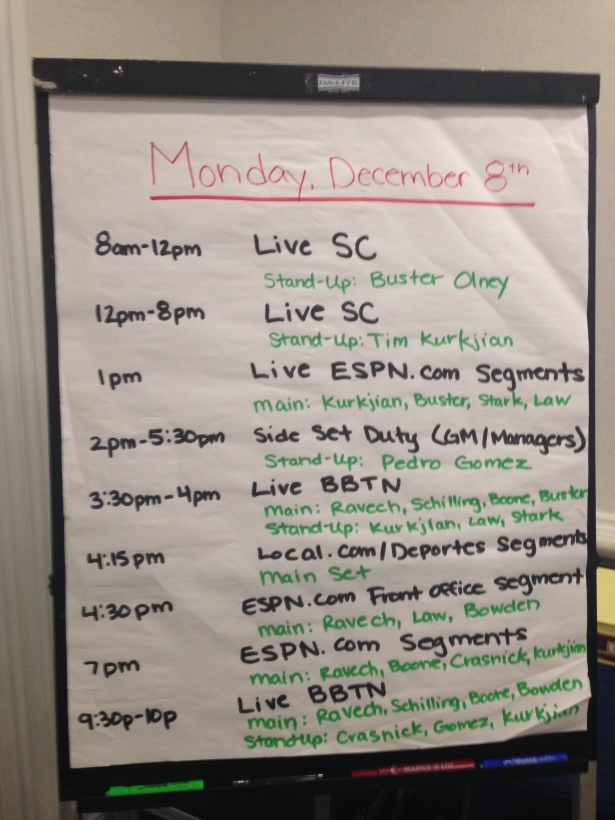 DA-LITE
Monday, December 8th
8am-12pm Live SC
Stand-Up: Buster Olney
12pm-8pm Live SC
Stand-Up: Tim Kurkjian
1pm Live ESPN.com Segments
main: Kurkjian, Buster, Stark, Law
2pm-5:30pm Side Set Duty (GM/Managers)
Stand-Up: Pedro Gomez
3:30pm-4pm Live BBTN
main: Ravech, Schilling, Boone, Buster
Stand-Up: Kurkjian, Law, Stark
4:15pm Local.com/Deportes Segments
Main Set
4:30pm ESPN.com Front Office Segment
main: Ravech, Law, Bowden
7pm ESPN.com Segments
main: Ravech, Boone, Crasnick, Kurkjian
9:30p-10p Live BBTN
main: Ravech, Schilling, Boone, Bowden
Standup: Crasnick, Gomez, Kurkjian
MARKS-A-LOT